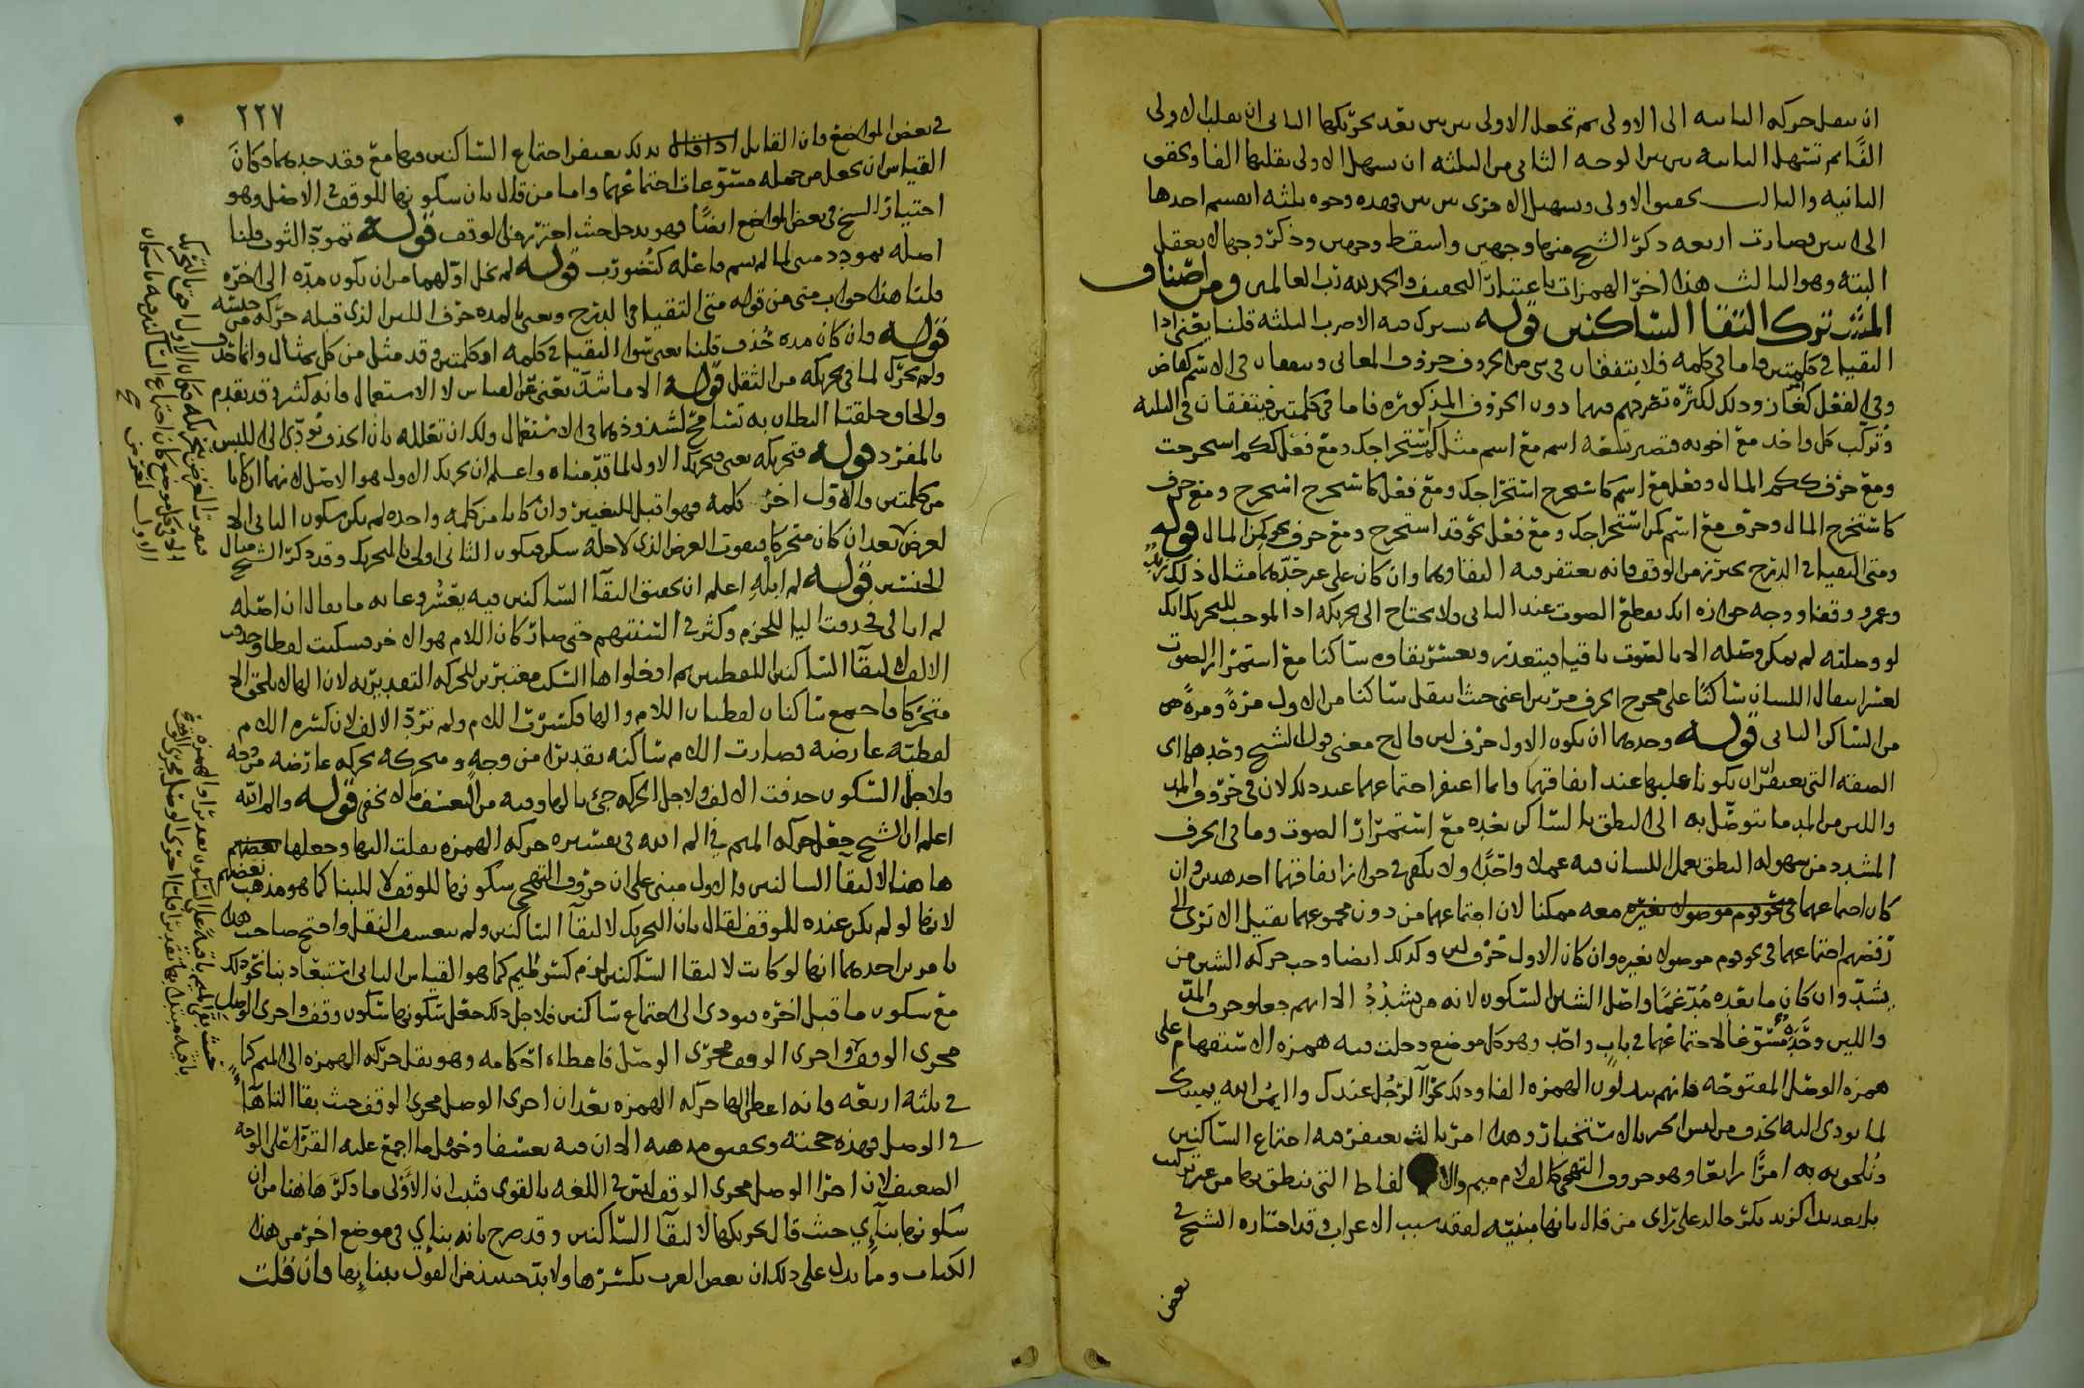 ان ينقل حركه الثانيه الى الاولى ثم تجعل الاولى بين بين بعد تحريكها الثانى ان يقلب الاولى
الفا ثم تسهل الثانيه بين بين الوجه الثانى من الثلثه ان يسهل الاولى بقلبها الفا و تحقق
الثانيه والثالث تحقيق الاولى وتسهيل الاخرى بين بين فهذه وجوه ثلثه انقسم احدها
الى اثنين فصارت اربعه ذكر الشيخ منها وجهين واسقط وجهين وذكر وجها لا يعقل
البته وهو الثالث هذا اخر الهمزات باعتبار التخفيف والحمد لله رب العالمين ومن اصناف
المشترك التقا الساكنين قوله يشترك فيه الاضرب الثلثه قلنا يعنى اذا
التقيا فى كلمتين فاما فى كلمه فلا يتفقان فى شى من الحروف حروف المعانى و يتفقان فى الاسم كفاض
وفى الفعل وذلك لكثرة تصرفهم فيهما دون الحروف المذكوره فاما فى كلمتين فيتفقان فى الثلثه
وتركب كل واحد مع اخويه فتصير تسعه اسم مع اسم مثل كم استخراجك ومع فعل ككم استخرجت
ومع حرف ككم المال وفعل مع اسم كاستخرج استخراجك ومع فعل كاستخرج استخرج ومع حرف
كاستخرج المال وحرف مع اسم كمن استخراجك ومع فعل نحو قد استخرج ومع حرف نحو كمن المال قوله
ومتى التقيا فى الدرج يحترز من الوقف فانه يغتفر فيه التقاوهما وان كان على غير حدهما مثال ذلك زيد
وعمرو وقفا ووجه جوازه انك تقطع الصوت عند الثانى ولا يحتاج الى تحريكه اذ الموجب للتحريك انك
لو وصلته لم يمكن وصله الا بالصوت باقيا فيتعذر ويعسر بقاوه ساكنا مع استمرار الصوت
لعسر انتقال اللسان ساكنا على مخرج الحرف مرتين اعنى حيث انتقل ساكنا من الاول مرة ومرة من
من الساكن الثانى قوله وحدهما ان يكون الاول حرف لين قال ح معنى قول الشيخ وحدهما اى
الصفه التى يغتفر ان يكونا عليها عند التقائهما وانما اغتفر اجتماعهما عند ذلك لان فى حروف المد
واللين من المد ما يتوصل به الى النطق بالساكن بعده مع استمرار الصوت وما فى الحرف
المشدد من سهوله النطق بعمل اللسان فيه عملا واحدا ولا يكفى فى جواز التقائهما احد هذين وان
كان اجتماعهما معه ممكنا لان اجتماعهما من دون مجموعهما يقتيل الا ترى الى
رفضهم اجتماعهما فى نحو قوم موصولا بغيره وان كان الاول حرف لين وكذلك ايضا وجب حركه الشين من
يشد وان كان ما بعده مدغما واصل الشين السكون لانه من يشدد الا انهم جعلو حرف المد
واللين وحده مسوغا لاجتماعهما فى باب واحد وهو كل موضع دخلت فيه همزه الاستفهام على
همزه الوصل المفتوحه فانهم يبدلون الهمزه الفا وذلك نحو آلرجل عندك وايمن الله يمينك
لما يودى اليه الحذف من لبس الخبر بالاستخبار وهذا امر ثالث يغتفر فيه اجتماع الساكنين
وتلحق به امرا رابعا وهو حروف التهجى كالف لام ميم والالفاظ التى ننطق بها من غير تركيب
بل تعديدا كزيد بكر خالد على راى من قال بانها مبنيه لفقد سبب الاعراب وقد اختاره الشيخ فى
بعض
٢٢٧
فى بعض المواضع وان القايل بذلك يغتفر اجتماع الساكنين فيها مع فقد حدهما وكان
القياس ان يجعل من جمله مسوغات اجتماعهما واما من قال بان سكونها للوقف فى الاصل وهو
اختيار الشيخ فى بعض المواضع ايضا فهو يدخل حيث احترز فى الوقف قوله تمود الثوب قلنا
اصله تمودد مبنى لما لم يسم فاعله كتضورب قوله لم تخل اولهما من ان يكون مده الى اخره
قلنا هذا جواب متى من قوله متى التقيا فى الدرج ويعنى بالمده حرف اللين الذى قبله حركه من جنسه
قوله وان كان مده حذف قلنا يعنى سوا التقيا فى كلمه او كلمتين وقد مثل من كل بمثال وانما حذف
ولم يحرك لما فى تحريكه من الثقل قوله الا ما شذ يعنى عن القياس لا الاستعمال فانه كثير قد تقدم
والحاق حلقتا البطان به تسامح لشذوذهما فى الاستعمال ولك ان تعلله بان الحذف يودى الى اللبس
بالمفرد قوله فتحريكه يعنى فتحريك الاول لما قدمناه واعلم ان تحريك الاول هو الاصل لانهما ان كانا
من كلمتين فالاول اخر كلمه فهو اقبل للتغيير وان كانا من كلمه واحده لم يكن سكون الثانى الا
لغرض بعد ان كان متحركا فيفوت الغرض الذى لاجله سكن فيكون الثانى اولى بالتحريك وقد ذكر الشيخ مثال
الجنسين قوله لم ابله اعلم ان تحقيق التقآ الساكنين فيه يعسر وغايه ما يقال ان اصله
لم ابالى فحذفت اليا للجزم وكثر فى السنتهم حتى صار كان اللام هو الاخر فسكنت لفظا وحذف
الالف لالتقآ الساكنين اللفظيين ثم ادخلوا ها السكت معتبرين للحركه التقديريه لان الها لا يلحق الا
متحركا فاجتمع ساكنان لفظيان اللام والها فكسرت اللام ولم ترد الالف لان كسره اللام
لفظيه عارضه فصارت اللام ساكنه تقديرا من وجه ومتحركه بحركه عارضه من وجه
فلاجل السكون حذفت الالف ولاجل الحركه جى بالها وفيه من التعسف ما لا يخفى قوله والم الله
اعلم ان الشيخ جعل حركه الميم فى الم الله فى تفسيره حركه الهمزه نقلت اليها وجعلها
ها هنا لالتقآ الساكنين والاول مبنى على ان حروف التهجى سكونها للوقف لا للبنا كما هو مذهب بعضهم
لانها لو لم يكن عنده للوقف لقال بان التحريك لالتقآ الساكنين ولم يتعسف النقل واحتج صاحب هذا
بامرين احدهما انها لو كانت لالتقا الساكنين لزم كسر الميم كما هو القياس الثانى استبعاد بنا نحو ذلك
مع سكون ما قبل اخره فيودى الى اجتماع ساكنين فلاجل ذلك جعل سكونها سكون وقف واجرى الوصل
مجرى الوقف واجرى الوقف مجرى الوصل فاعطاه احكامه وهو نقل حركه الهمزه الى الميم كما
فى ثلثه اربعه فانه اعطى الها حركه الهمزه بعد ان اجرى الوصل مجرى الوقف حيث بقا التا هآ
فى الوصل فهذه حجته وتحقيق مذهبه الا ان فيه تعسفا وحمل ما اجمع عليه القرآ على الوجه
الضعيف لان اجرا الوصل مجرى الوقف ليس فى اللغه بالقوى فثبت ان الاولى ما ذكره هاهنا من ان
سكونها بناءى حيث قال تحريكها لالتقآ الساكنين وقد صرح بانه بناءى فى موضع اخر من هذا
الكتاب ومما يدل على ذلك ان بعض العرب يكسرها ولا بد حينئذ من القول ببنائها فان قلت